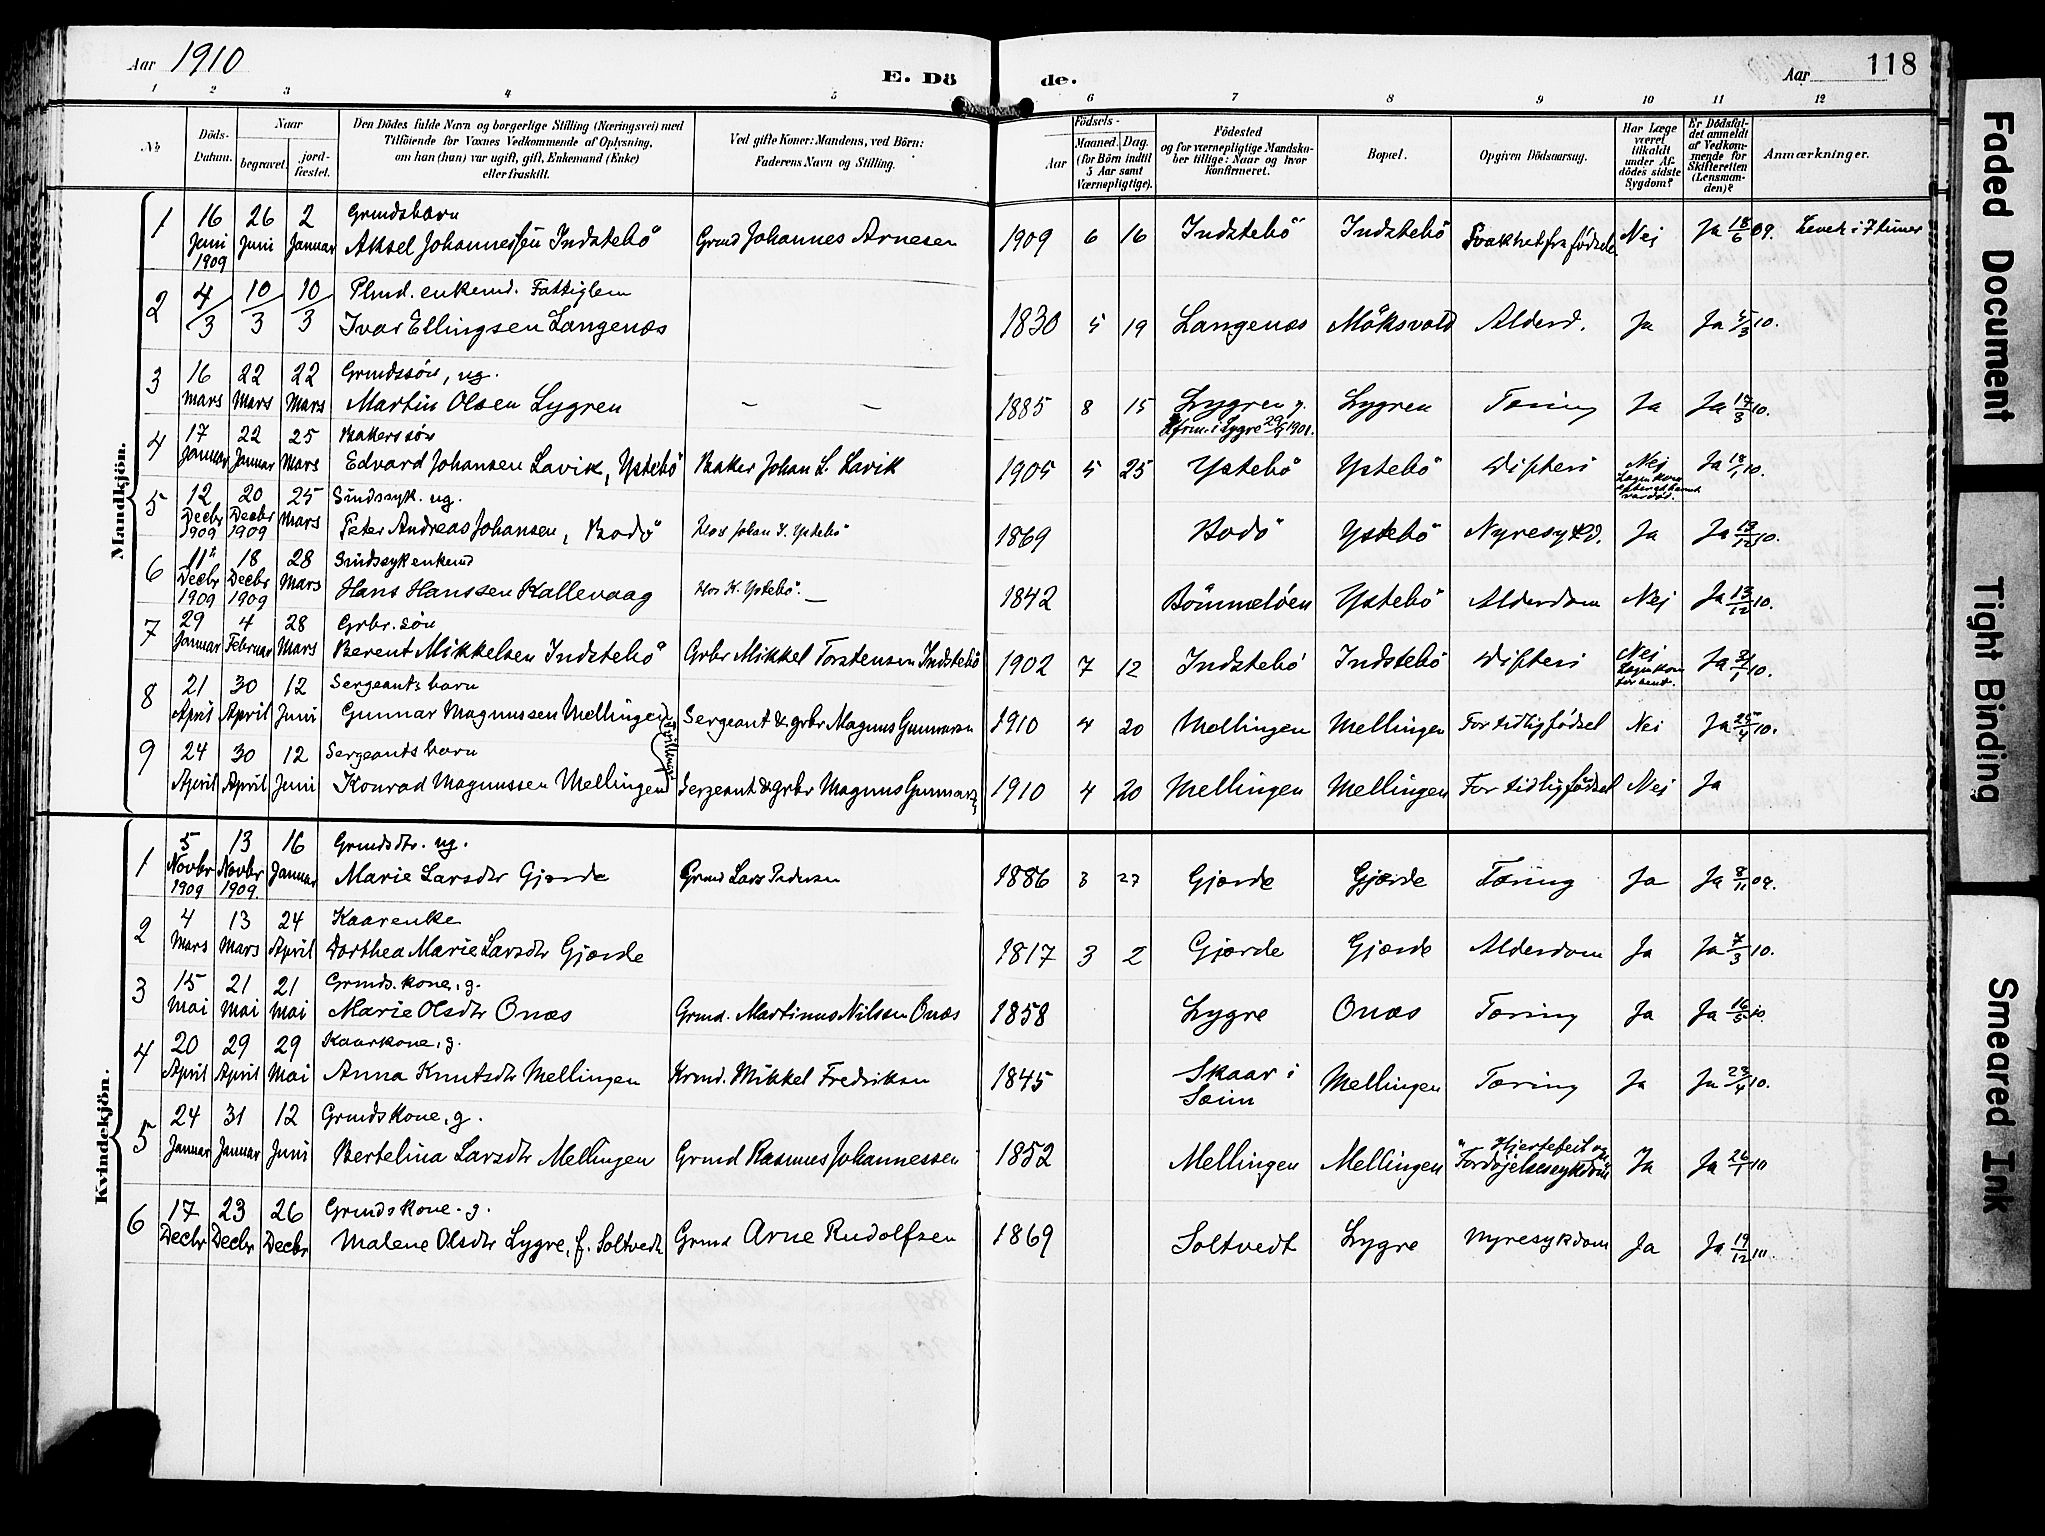 Aar 1910
E. Döde.
Aar 118
1 2 3 4 5 6 7 8 9 10 11 12
No
Döds-Datum.
Naar
begravet.
jordfæstet.
Den Dödes fulde Navn og borgerlige Stilling (Næringsvei) med
Tilföiende for Voxnes Vedkommende af Oplysning,
om han (hun) var ugift, gift, Enkemand (Enke)
eller fraskilt.
Ved gifte Koner: Mandens, ved Börn:
Faderens Navn og Stilling.
Födsels-
Aar
Maaned. Dag.
(for Börn indtil
5 Aar samt
Værnepligtige).
Födested
og for værnepligtige Mandskaber tillige: Naar og hvor
konfirmeret.
Bopæl.
Opgiven Dödsaarsag.
Har Læge
været
tilkaldt
under Afdödes sidste
Sygdom?
Er Dödsfaldet anmeldt
af Vedkommende for
Skifteretten
(Lensmanden)?
Anmærkninger.
Mandkjön.
1 16 Juni 1909 26 Juni 2 Januar Grmdsbarn
Aksel Johannessen Indstebö Grmd Johannes Arnesen 1909 6 16 Indstebö Indstebö Svakhet fra födsele Nej Ja 18/6 09. Levet i 7 timer
2 4/3 10/3 10/3 Plmd. enkemd. Fattiglem
Ivar Ellingsen Langenæs 1830 5 19 Langenæs Möksvold Alderd. Ja Ja 5/3 10.
3 16 Mars 22 Mars 22 Mars Grmdssön, ug.
Martin Olsen Lygren — — 1885 8 15 Lygren Lygren Tæring Ja Ja 17/3 10.
4 17 Januar 22 Januar 25 Mars Bakerssön
Edvard Johansen Lavik, Ystebö Baker Johan L. Lavik 1905 5 25 Ystebö Ystebö Difteri Nej Ja 18/1 10.
5 12 Decbr 1909 20 Decbr 1909 25 Mars Sindssyk. ug.
Peter Andreas Johansen, Bodö Hos Johan I. Ystebö 1869 Bodö Ystebö Nyresykd. Ja Ja 13/12 10.
6 11 Decbr 1909 18 Decbr 1909 28 Mars Sindssyk enkemd
Hans Hanssen Kallevaag Hos K. Ystebö. — 1842 Bömmeløen Ystebö Alderdom Nej Ja 13/12 10.
7 29 Januar 4 Februar 28 Mars Grbr. sön
Berent Mikkelsen Indstebö Grbr Mikkel Torstensen Indstebö 1902 7 12 Indstebö Indstebö Difteri Nej Ja 31/1 10.
8 21 April 30 April 12 Juni Sergeants barn
Gunnar Magnussen Mellingen Sergeant & grbr Magnus Gunnarsen 1910 4 20 Mellingen Mellingen For tidlig födsel Nei Ja 25/4 10.
tvillinge
9 24 April 30 April 12 Juni Sergeants barn
Konrad Magnussen Mellingen Sergeant & grbr Magnus Gunnarsn 1910 4 20 Mellingen Mellingen For tidlig födsel Nej Ja
Kvindekjön.
1 5 Novbr 1909 13 Novbr 1909. 16 Januar Grmdsdtr. ug.
Marie Larsdtr Gjærde Grmd Lars Pedersen 1886 3 27 Gjærde Gjærde Tæring Ja Ja 8/11 09.
2 4 Mars 13 Mars 24 April Kaarenke
Dorthea Marie Larsdtr Gjærde 1817 3 2 Gjærde Gjærde Alderdom Ja Ja 7/3 10.
3 15 Mai 21 Mai 21 Mai Grmds. kone, g.
Marie Olsdtr Onæs Grmd. Martinus Nilssen Onæs 1858 Lygre Onæs Tæring Ja Ja 16/5 10.
4 20 April 29 April 29 Mai Kaarkone, g.
Anna Knutsdtr Mellingen Krmd. Mikkel Fredriksen 1845 Skaar i Sæim Mellingen Tæring Ja Ja 23/4 10.
5 24 Januar 31 Januar 12 Juni Grmdskone, g.
Bertelina Larsdtr Mellingen Grmd Rasmus Johannessen 1852 Mellingen Mellingen Hjertefeil og Fordöjelsessykdom Ja Ja 26/1 10
6 17 Decbr 23 Decbr 26 Decbr Grmdskone. g.
Malene Olsdtr Lygre, f. Soltvedt Grmd Arne Rudolfsen 1869 Soltvedt Lygre Nyresykdom Ja Ja 19/12 10.
Faded Document
Tight Binding
Smeared Ink